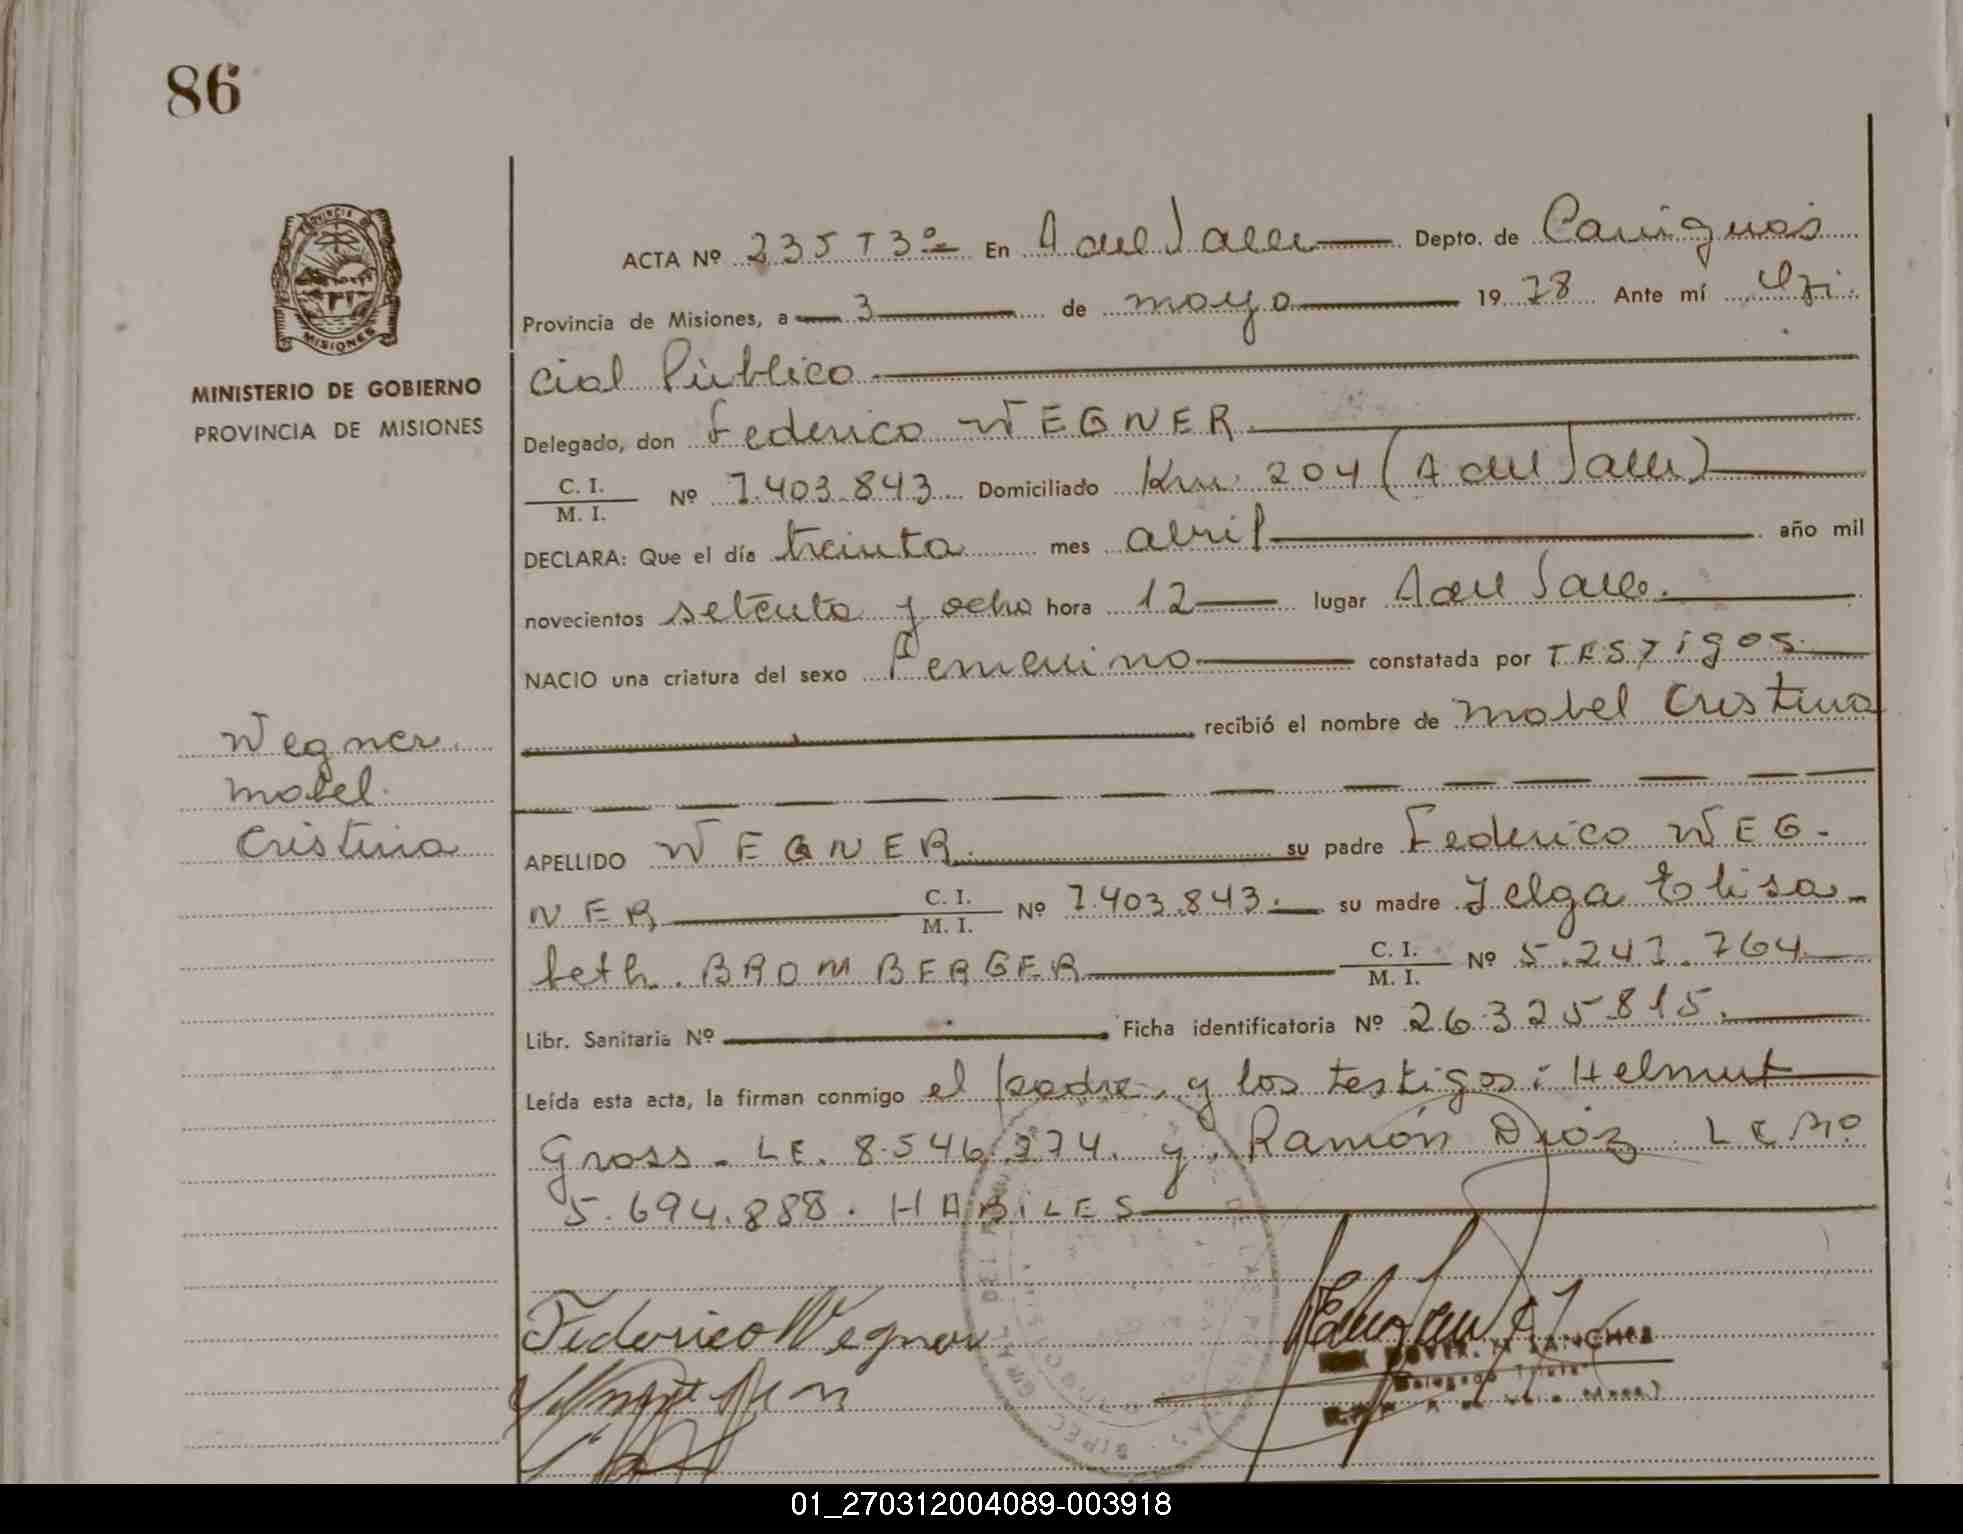 86
MINISTERIO DE GOBIERNO
PROVINCIA DE MISIONES
ACTA Nº 235 T3º En A del Valle Depto. de Cainguás
Provincia de Misiones, a 3 de mayo 1978 Ante mí Ofi-
cial Público
Delegado, don Federico WEGNER
C. I. / M. I. Nº 7.403.843 Domiciliado Km 204 (A del Valle)
DECLARA: Que el día treinta mes abril año mil
novecientos setenta y ocho hora 12 lugar A del Valle.
NACIO una criatura del sexo Femenino constatada por TESTigos
recibió el nombre de Mabel Cristina
Wegner
Mabel
Cristina
APELLIDO WEGNER su padre Federico WEG-
NER C. I. / M. I. Nº 7.403.843. su madre Helga Elisa-
beth BROMBERGER C. I. / M. I. Nº 5.247.764
Libr. Sanitaria Nº Ficha identificatoria Nº 26325815.
Leída esta acta, la firman conmigo el padre, y los testigos: Helmut
Gross - LE. 8.546.274. y Ramón Dióz LE Nº
5.694.888. HABiLES
Federico Wegner
SANCHEZ
Delegado Titular
01_270312004089-003918